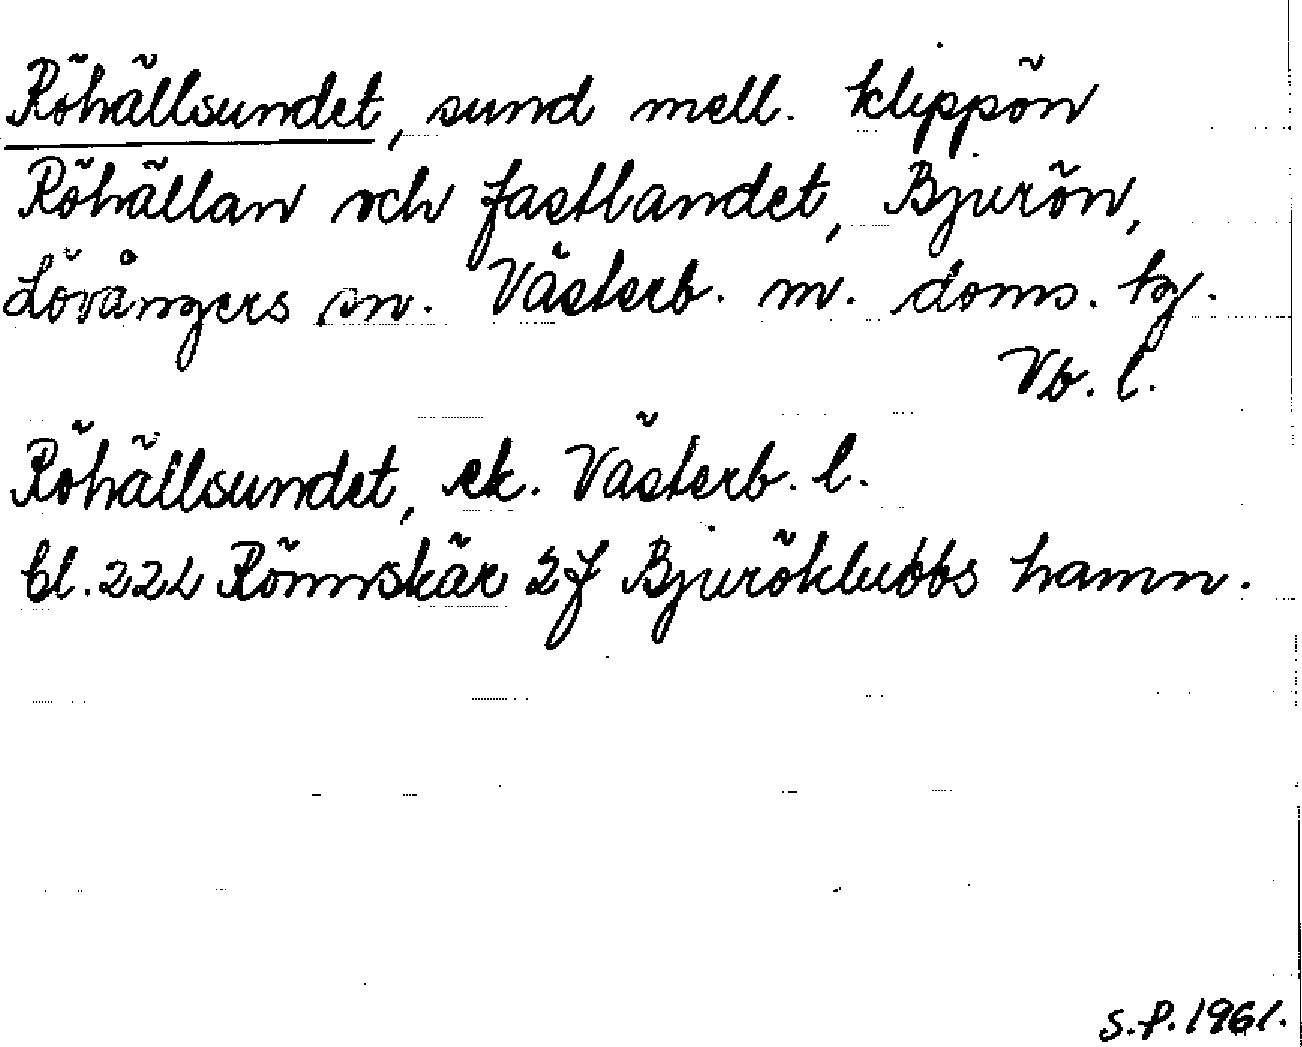 Röhällsundet, sund mell. klippön
Röhällan och fastlandet, Bjurön,
Lövångers sn. Västerb. m. doms. tg.
Vb. l.
Röhällsundet, ek. Västerb. l.
bl. 22L Rönnskär 2f Bjuröklubbs hamn.
S.P. 1961.